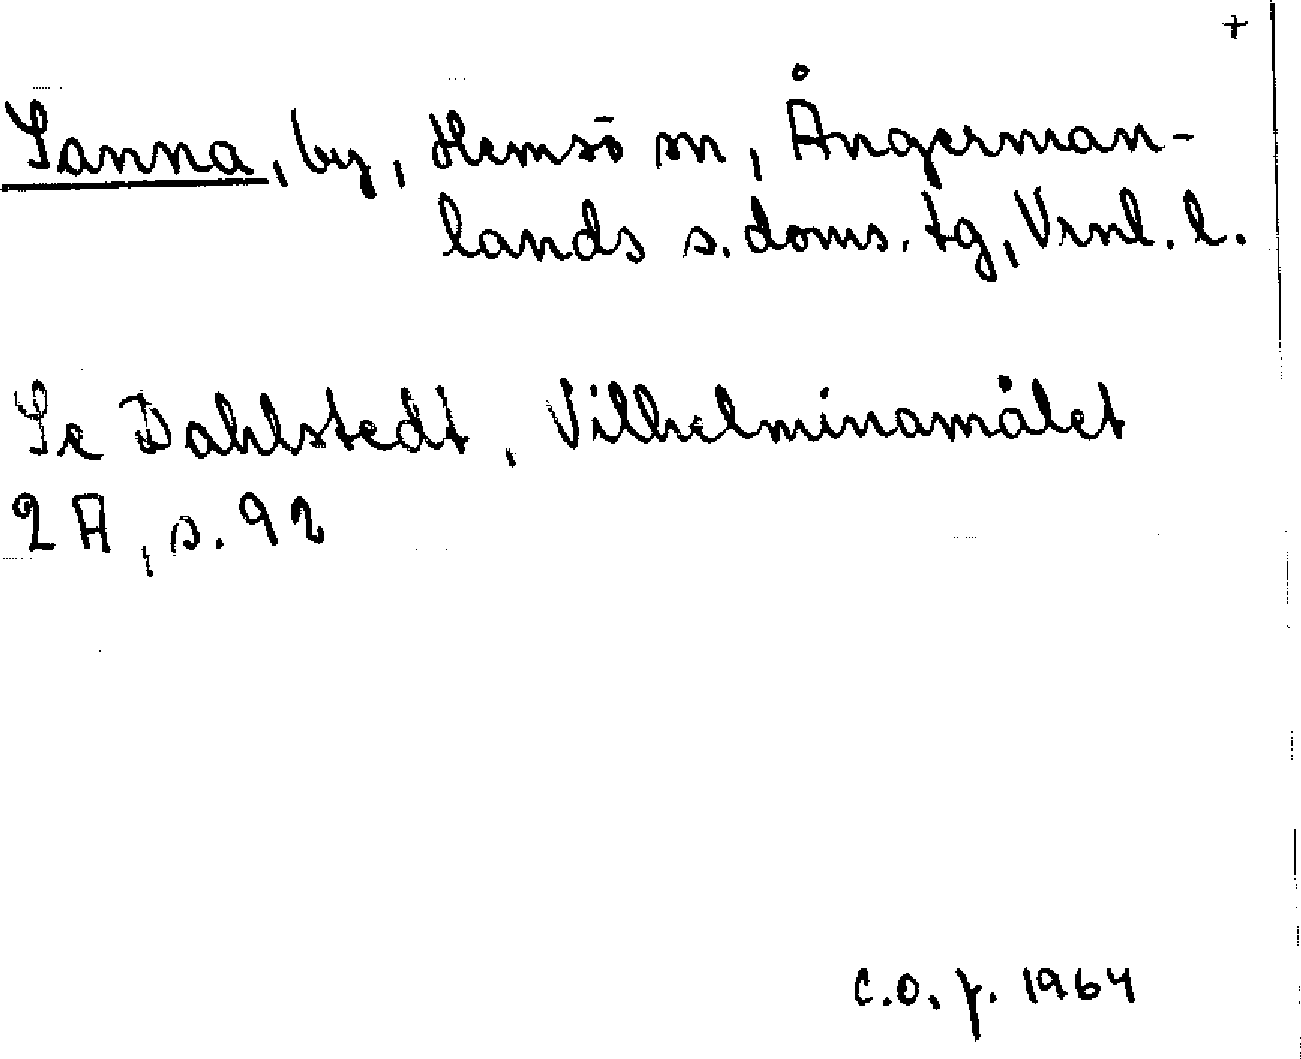 +
Sanna, by, Hemsö sn, Ångerman-
lands s. doms. tg, Vrnl. l.
Se Dahlstedt, Vilhelminamålet
2 A, s. 92
C.O. f. 1964